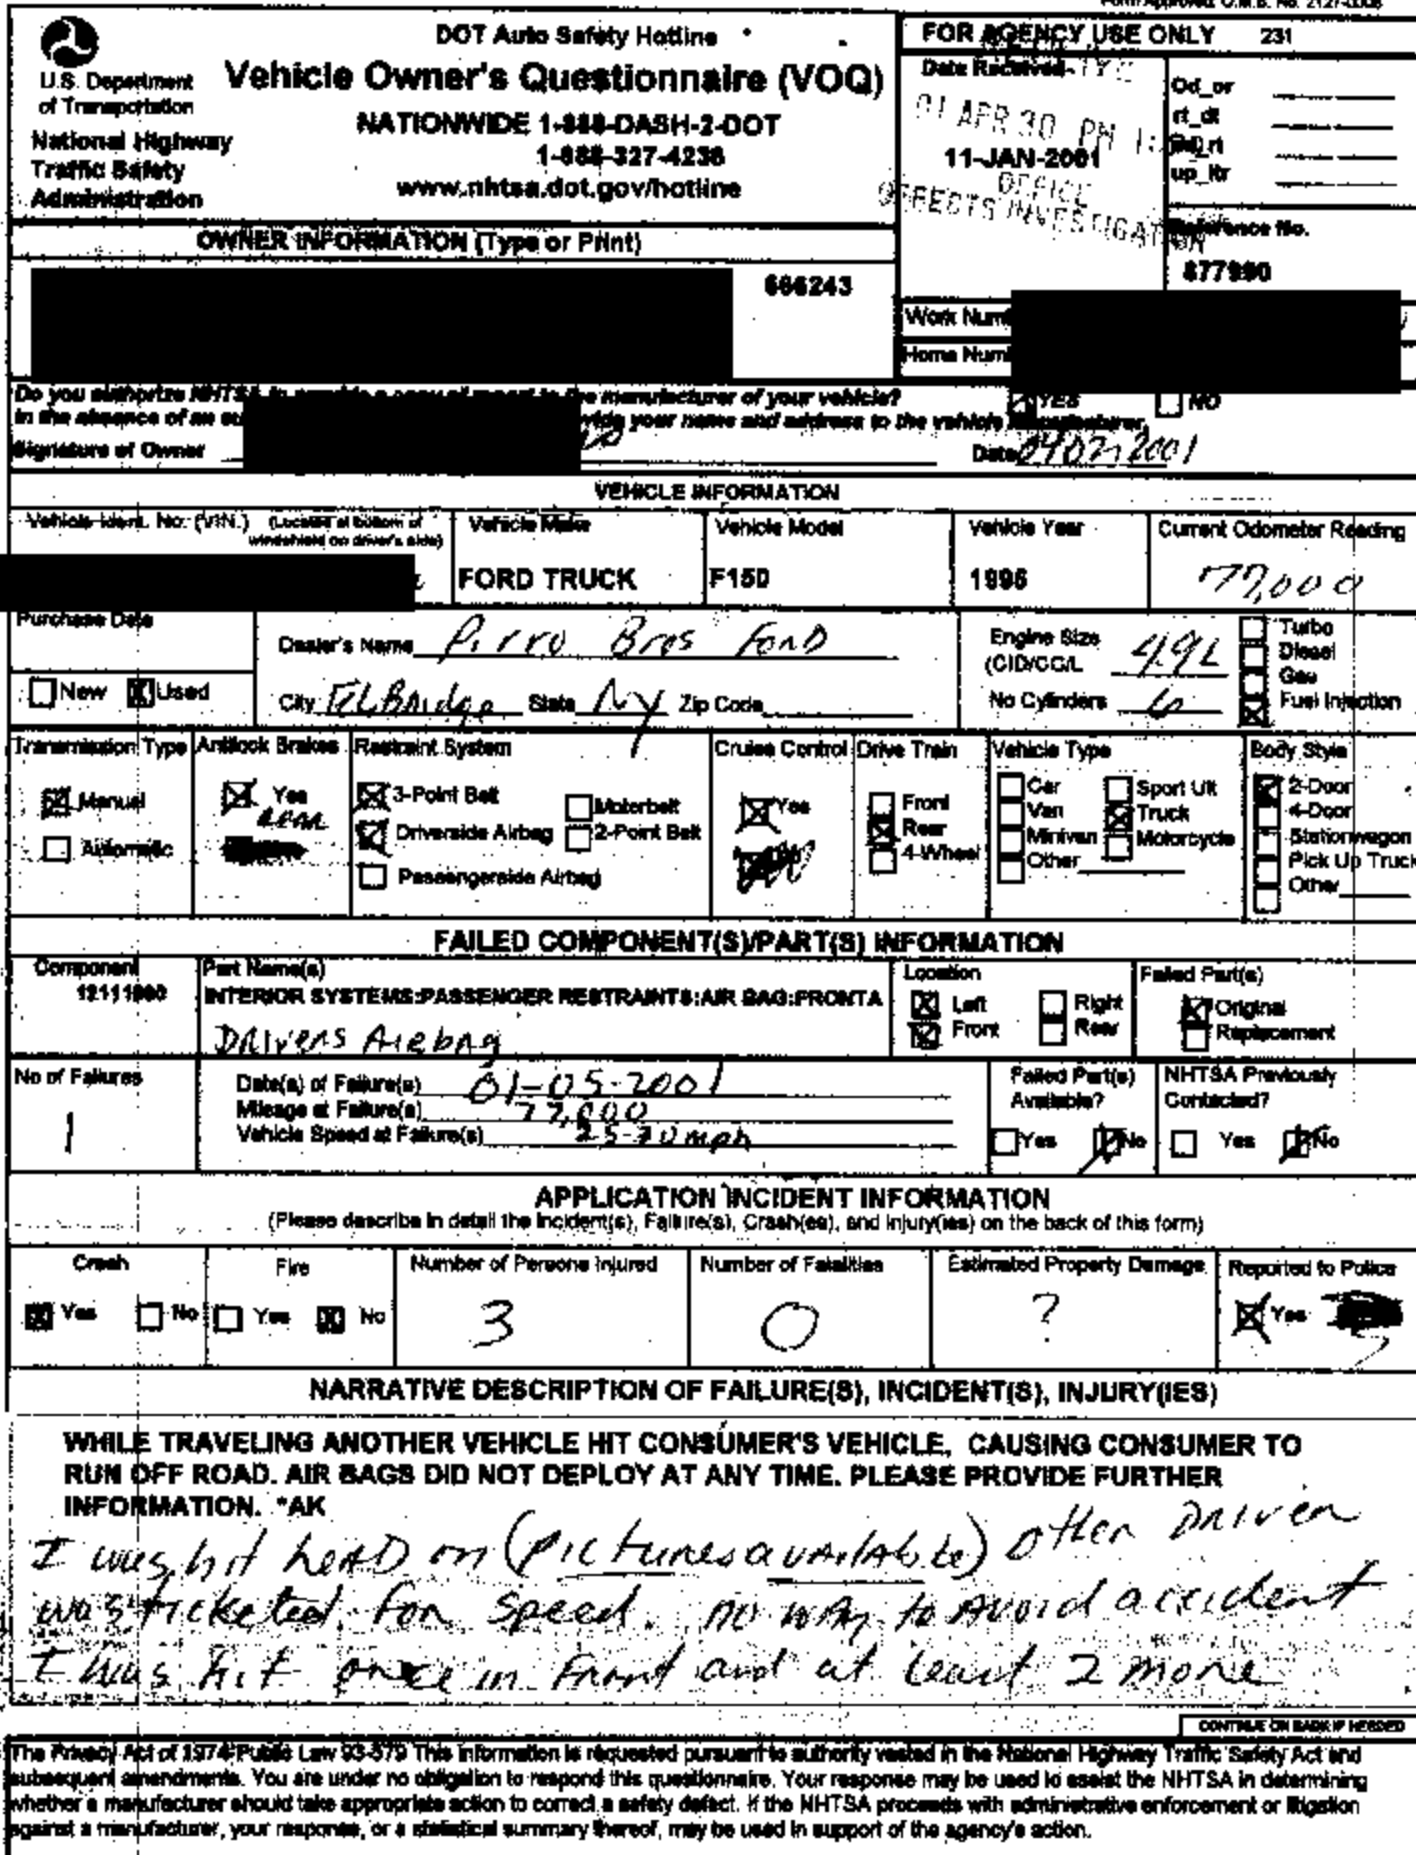 Form Approved: O.M.B. No. 2127-0008
U.S. Department
of Transportation
National Highway
Traffic Safety
Administration
DOT Auto Safety Hotline
Vehicle Owner's Questionnaire (VOQ)
NATIONWIDE 1-888-DASH-2-DOT
1-888-327-4236
www.nhtsa.dot.gov/hotline
FOR AGENCY USE ONLY 231
Date Received
01 APR 30 PM
11-JAN-2001
OFFICE
DEFECTS INVESTIGATION
Od_or
rt_dt
od_rt
up_ltr
Reference No.
877990
OWNER INFORMATION (Type or Print)
666243
Work Num
Home Num
Do you authorize NHTSA to provide a copy of report to the manufacturer of your vehicle?
YES NO
In the absence of an au vide your name and address to the vehicle manufacturer.
Signature of Owner
Date 04/02/2001
VEHICLE INFORMATION
Vehicle Ident. No. (VIN.) (Located at bottom of windshield on driver's side)
Vehicle Make
FORD TRUCK
Vehicle Model
F150
Vehicle Year
1995
Current Odometer Reading
77,000
Purchase Date
New Used
Dealer's Name Pirro Bros Ford
City ELBridge State NY Zip Code
Engine Size
(CID/CC/L 4.9L
No Cylinders 6
Turbo
Diesel
Gas
Fuel Injection
Transmission Type
Manual
Automatic
Antilock Brakes
Yes
REAR
Restraint System
3-Point Belt
Motorbelt
Driverside Airbag
2-Point Belt
Passengerside Airbag
Cruise Control
Yes
Drive Train
Front
Rear
4-Wheel
Vehicle Type
Car
Van
Minivan
Other
Sport Ult
Truck
Motorcycle
Body Style
2-Door
4-Door
Stationwagon
Pick Up Truck
Other
FAILED COMPONENT(S)/PART(S) INFORMATION
Component
12111000
Part Name(s)
INTERIOR SYSTEMS:PASSENGER RESTRAINTS:AIR BAG:FRONTA
Drivers Airbag
Location
Left Right
Front Rear
Failed Part(s)
Original
Replacement
No of Failures
1
Date(s) of Failure(s) 01-05-2001
Mileage at Failure(s) 77,000
Vehicle Speed at Failure(s) 25-30 mph
Failed Part(s)
Available?
Yes No
NHTSA Previously
Contacted?
Yes No
APPLICATION INCIDENT INFORMATION
(Please describe in detail the Incident(s), Failure(s), Crash(es), and Injury(ies) on the back of this form)
Crash
Yes No
Fire
Yes No
Number of Persons Injured
3
Number of Fatalities
0
Estimated Property Damage
?
Reported to Police
Yes
NARRATIVE DESCRIPTION OF FAILURE(S), INCIDENT(S), INJURY(IES)
WHILE TRAVELING ANOTHER VEHICLE HIT CONSUMER'S VEHICLE, CAUSING CONSUMER TO
RUN OFF ROAD. AIR BAGS DID NOT DEPLOY AT ANY TIME. PLEASE PROVIDE FURTHER
INFORMATION. *AK
I was hit heAD on (Pictures avAilAble) other Driver
was ticketed for speed. no way to Avoid accident
I was hit once in Front and at least 2 more
CONTINUE ON BACK IF NEEDED
The Privacy Act of 1974-Public Law 93-579 This information is requested pursuant to authority vested in the National Highway Traffic Safety Act and
subsequent amendments. You are under no obligation to respond this questionnaire. Your response may be used to assist the NHTSA in determining
whether a manufacturer should take appropriate action to correct a safety defect. If the NHTSA proceeds with administrative enforcement or litigation
against a manufacturer, your response, or a statistical summary thereof, may be used in support of the agency's action.